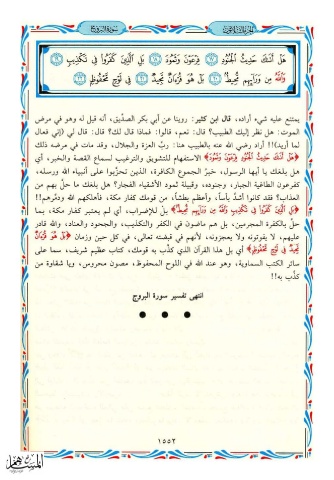 الجزء الثلاثون
سورة البروج
هَلْ أَتَىٰكَ حَدِيثُ الْجُنُودِ ١٧ فِرْعَوْنَ وَثَمُودَ ١٨ بَلِ الَّذِينَ كَفَرُوا فِي تَكْذِيبٍ ١٩
وَاللَّهُ مِن وَرَائِهِم مُّحِيطٌ ٢٠ بَلْ هُوَ قُرْءَانٌ مَّجِيدٌ ٢١ فِي لَوْحٍ مَّحْفُوظٍ ٢٢
يمتنع عليه شيء أراده، قال ابن كثير: روينا عن أبي بكر الصدّيق، أنه قيل له وهو في مرض
الموت: هل نظر إليك الطبيب؟ قال: نعم، قالوا: فماذا قال لك؟ قال: قال لي (إني فعال
لما أريد)!! أراد رضي الله عنه بالطبيب هنا: ربَّ العزة والجلال، وقد مات في مرضه ذلك
﴿هَلْ أَتَىٰكَ حَدِيثُ الْجُنُودِ فِرْعَوْنَ وَثَمُودَ﴾ الاستفهام للتشويق والترغيب لسماع القصة والخبر، أي
هل بلغك يا أيها الرسول، خبرُ الجموع الكافرة، الذين تحزَّبوا على أنبياء الله ورسله،
كفرعون الطاغية الجبار، وجنوده، وقبيلة ثمود الأشقياء الفجار؟ هل بلغك ما حلَّ بهم من
العذاب؟ فقد كانوا أشدَّ بأساً، وأعظم بطشاً، من قومك كفار مكة، فأهلكهم الله ودمَّرهم!!
﴿بَلِ الَّذِينَ كَفَرُوا فِي تَكْذِيبٍ وَاللَّهُ مِن وَرَائِهِم مُّحِيطٌ﴾ بل للإضراب، أي لم يعتبر كفار مكة، بما
حلَّ بالكفرة المجرمين، بل هم ماضون في الكفر والتكذيب، والجحود والعناد، والله قادر
عليهم، لا يفوتونه ولا يعجزونه، لأنهم في قبضته تعالى، في كل حين وزمان ﴿بَلْ هُوَ قُرْءَانٌ
مَّجِيدٌ فِي لَوْحٍ مَّحْفُوظٍ﴾ أي بل هذا القرآن الذي كذَّب به قومك، كتاب عظيم شريف، سما على
سائر الكتب السماوية، وهو عند الله في اللوح المحفوظ، مصون محروس، ويا شقاوة من
كذَّب به!!
انتهى تفسير سورة البروج
١٥٥٢